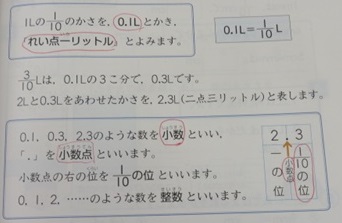 1Lの1/10のかさを，0.1Lとかき，
「れい点一リットル」とよみます。
0.1L=1/10L
3/10Lは，0.1Lの3こ分で，0.3Lです。
2Lと0.3Lをあわせたかさを，2.3L(二点三リットル)と表します。
0.1，0.3，2.3のような数を小数といい，
「.」を小数点といいます。
小数点の右の位を1/10の位といいます。
0，1，2，……のような数を整数といいます。
2.3
一の位
小数点
1/10の位